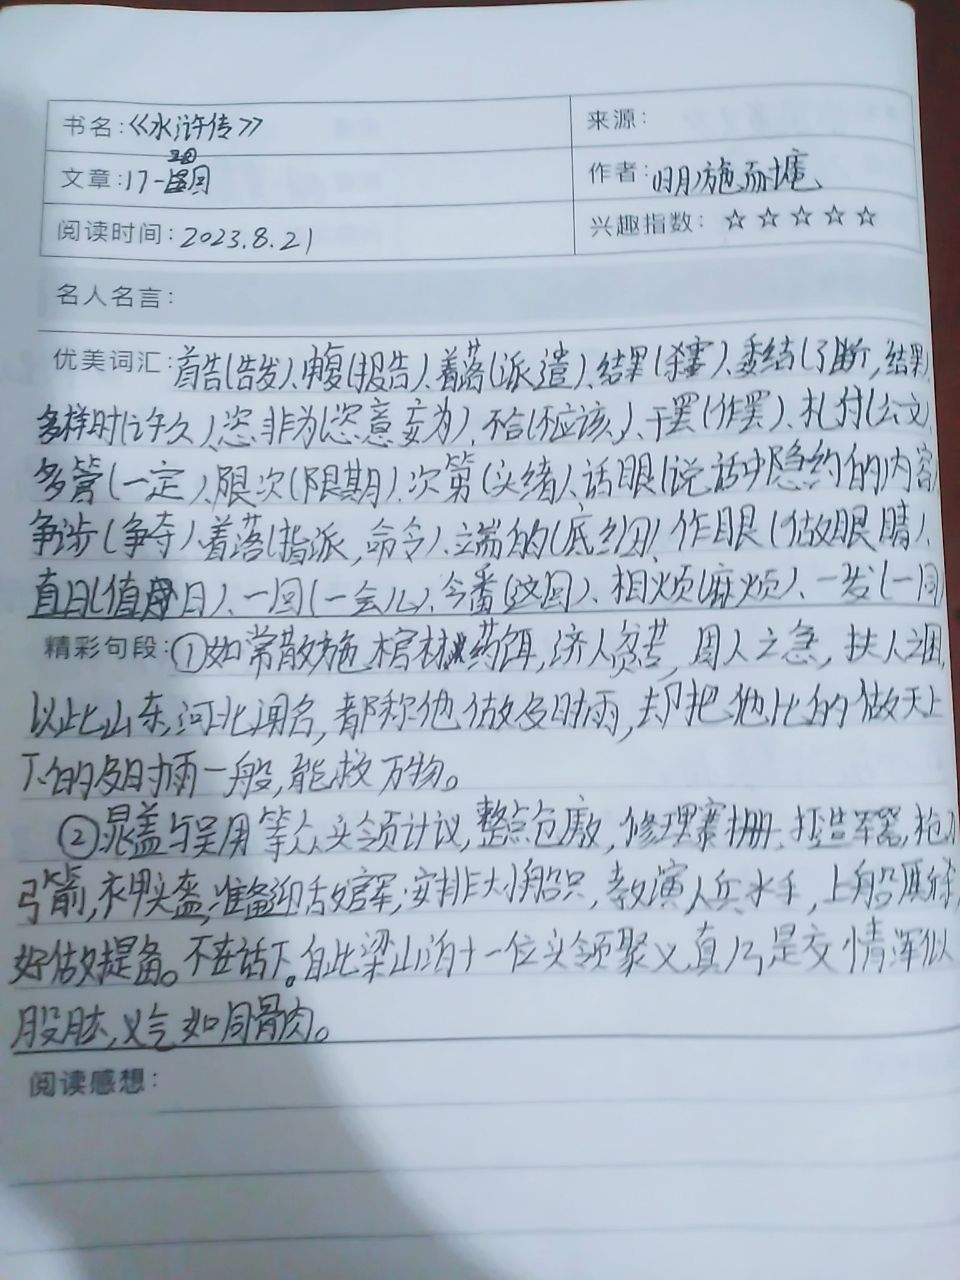 书名:《水浒传》
来源:
文章:17-20回
作者:(明)施耐庵
阅读时间:2023.8.21
兴趣指数: ☆☆☆☆☆
名人名言:
优美词汇:首告(告发)、申复(报告)、着落(派遣)、结果(杀害)、委结(了断,结果)
多样时(许久)、恣非为(恣意妄为)、不合(不应该)、干罢(作罢)、札付(公文)
多管(一定)、限次(限期)、次第(头绪)、话眼(说话中隐约的内容)
争涉(争夺)、着落(指派,命令)、端的(底细)、作眼(做眼睛)、
直日(值日)、一回(一会儿)、今番(这回)、相烦(麻烦)、一发(一同)
精彩句段:①如常散施棺材药饵,济人贫苦,周人之急,扶人之困,
以此山东,河北闻名,都称他做及时雨,却把他比的做天上
下的及时雨一般,能救万物。
②晁盖与吴用等众头领计议,整点仓廒,修理寨栅,打造军器,枪刀
弓箭,衣甲头盔,准备迎敌官军;安排大小船只,教演人兵水手,上船厮杀,
好做提备。不在话下。自此梁山泊十一位头领聚义,真乃是交情浑似
股肱,义气如同骨肉。
阅读感想: